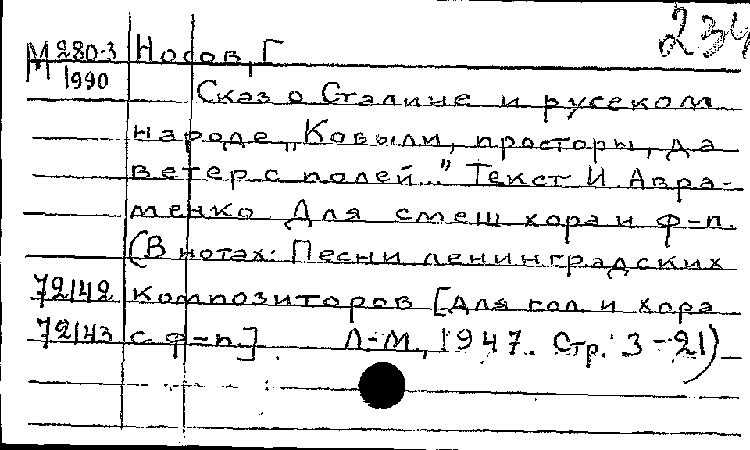 234
М 280-3 Носов, Г
1990
Сказ о Сталине и русском
народе „Ковыли, просторы, да
ветер с полей..." Текст И. Авра-
менко Для смеш хора и ф-п.
(В нотах: Песни ленинградских
72142 композиторов [для гол. и хора
72143 с ф-п.] Л-М, 1947. Стр. 3-21)